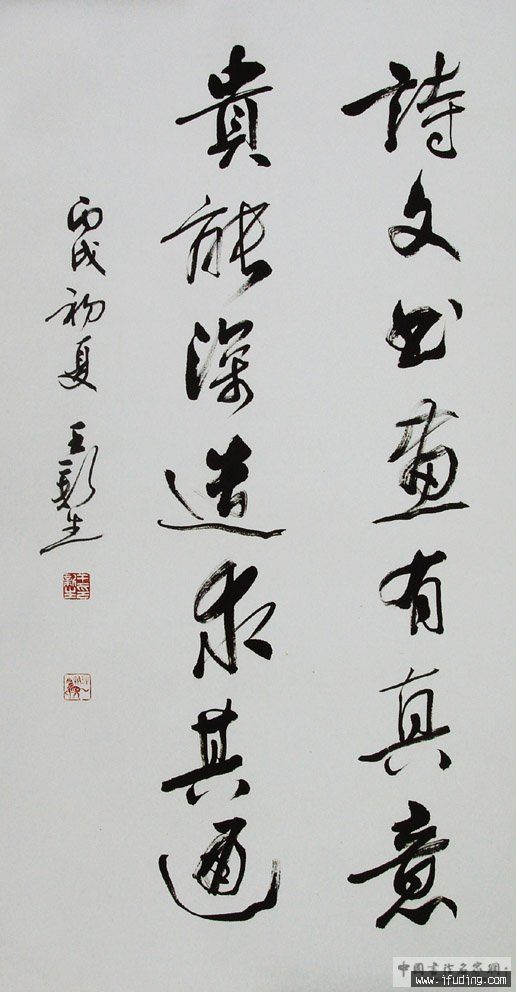 詩文书畫有真意
貴能深造求其通
丙戌初夏 王新生
中国書法名家網
www.ifuding.com